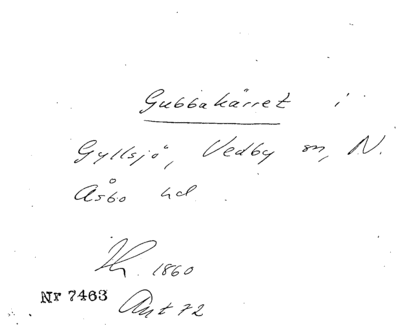 Gubbakärret i
Gyllsjö, Vedby sn, N.
Åsbo hd
1860
Nr 7463
Ant 72